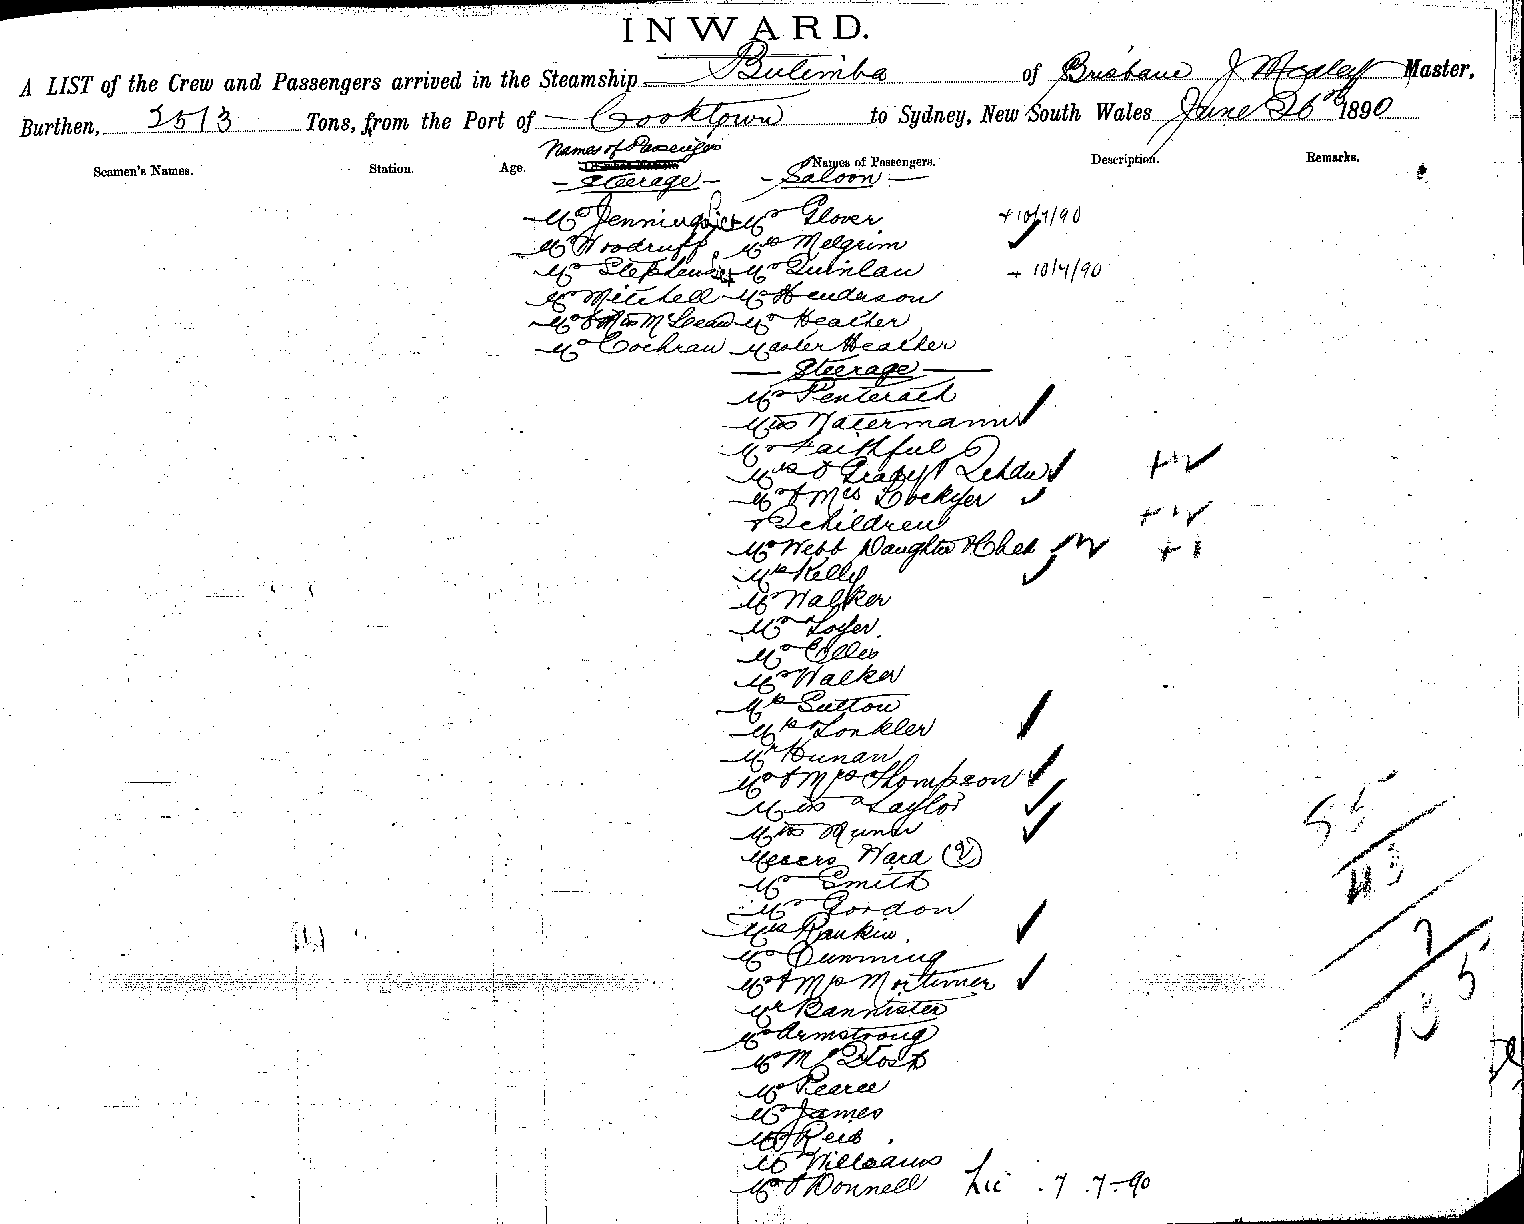 INWARD.
A LIST of the Crew and Passengers arrived in the Steamship Bulimba of Brisbane J Master,
Burthen, 2513 Tons, from the Port of Cooktown to Sydney, New South Wales June 26th 1890
Seamen's Names. Station. Age. Names of Passengers Names of Passengers. Description. Remarks.
Steerage Saloon
Mr Jennings Mr Glover +10/7/90
Mr Woodruff Mrs Melgrim
Mr Stephens Mr Quinlan + 10/7/90
Mr Mitchell Mr Henderson
Mr & Mrs McLean Mr Heather
Mr Cochran Master Heather
Steerage
Mr Penterath
Miss Watermann
Mr Faithful
Mrs
Mr & Mrs Lockyer
children
Mr Webb Daughter &
Mrs Kelly
Mr Walker
Mr
Mr Ellis
Mr Walker
Mrs Sutton
Mrs Lonkler
Mr Hunan
Mr & Mrs Thompson
Miss Taylor
Miss Munn
Messrs Ward (2)
Mr Smith
Mr Gordon
Mrs Rankin
Mr Cumming
Mr & Mrs Mortimer
Mr Bannister
Mr Armstrong
Mr
Mr Pearce
Mr James
Mr Reid
Mr Williams
Mr O'Donnell Lic .7.7-90
55
43
7
5
13